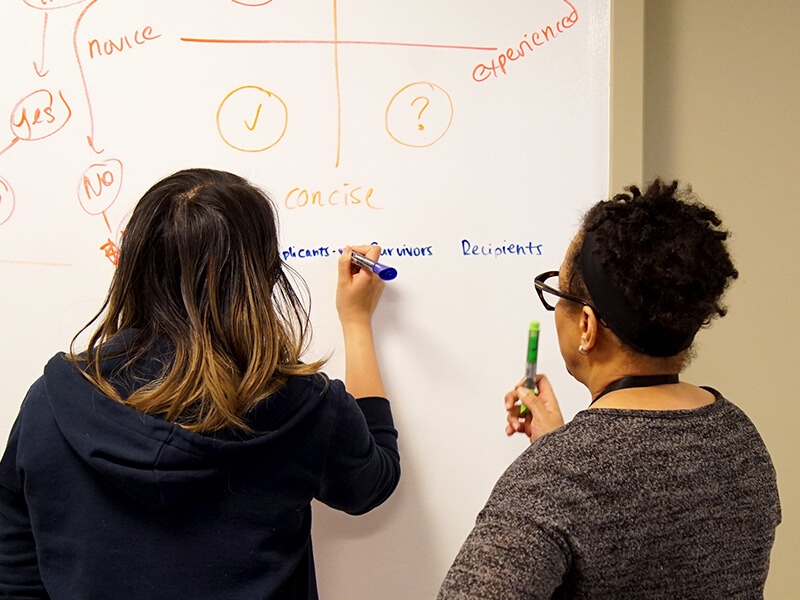 novice
experienced
yes
?
NO
concise
Survivors
Recipients